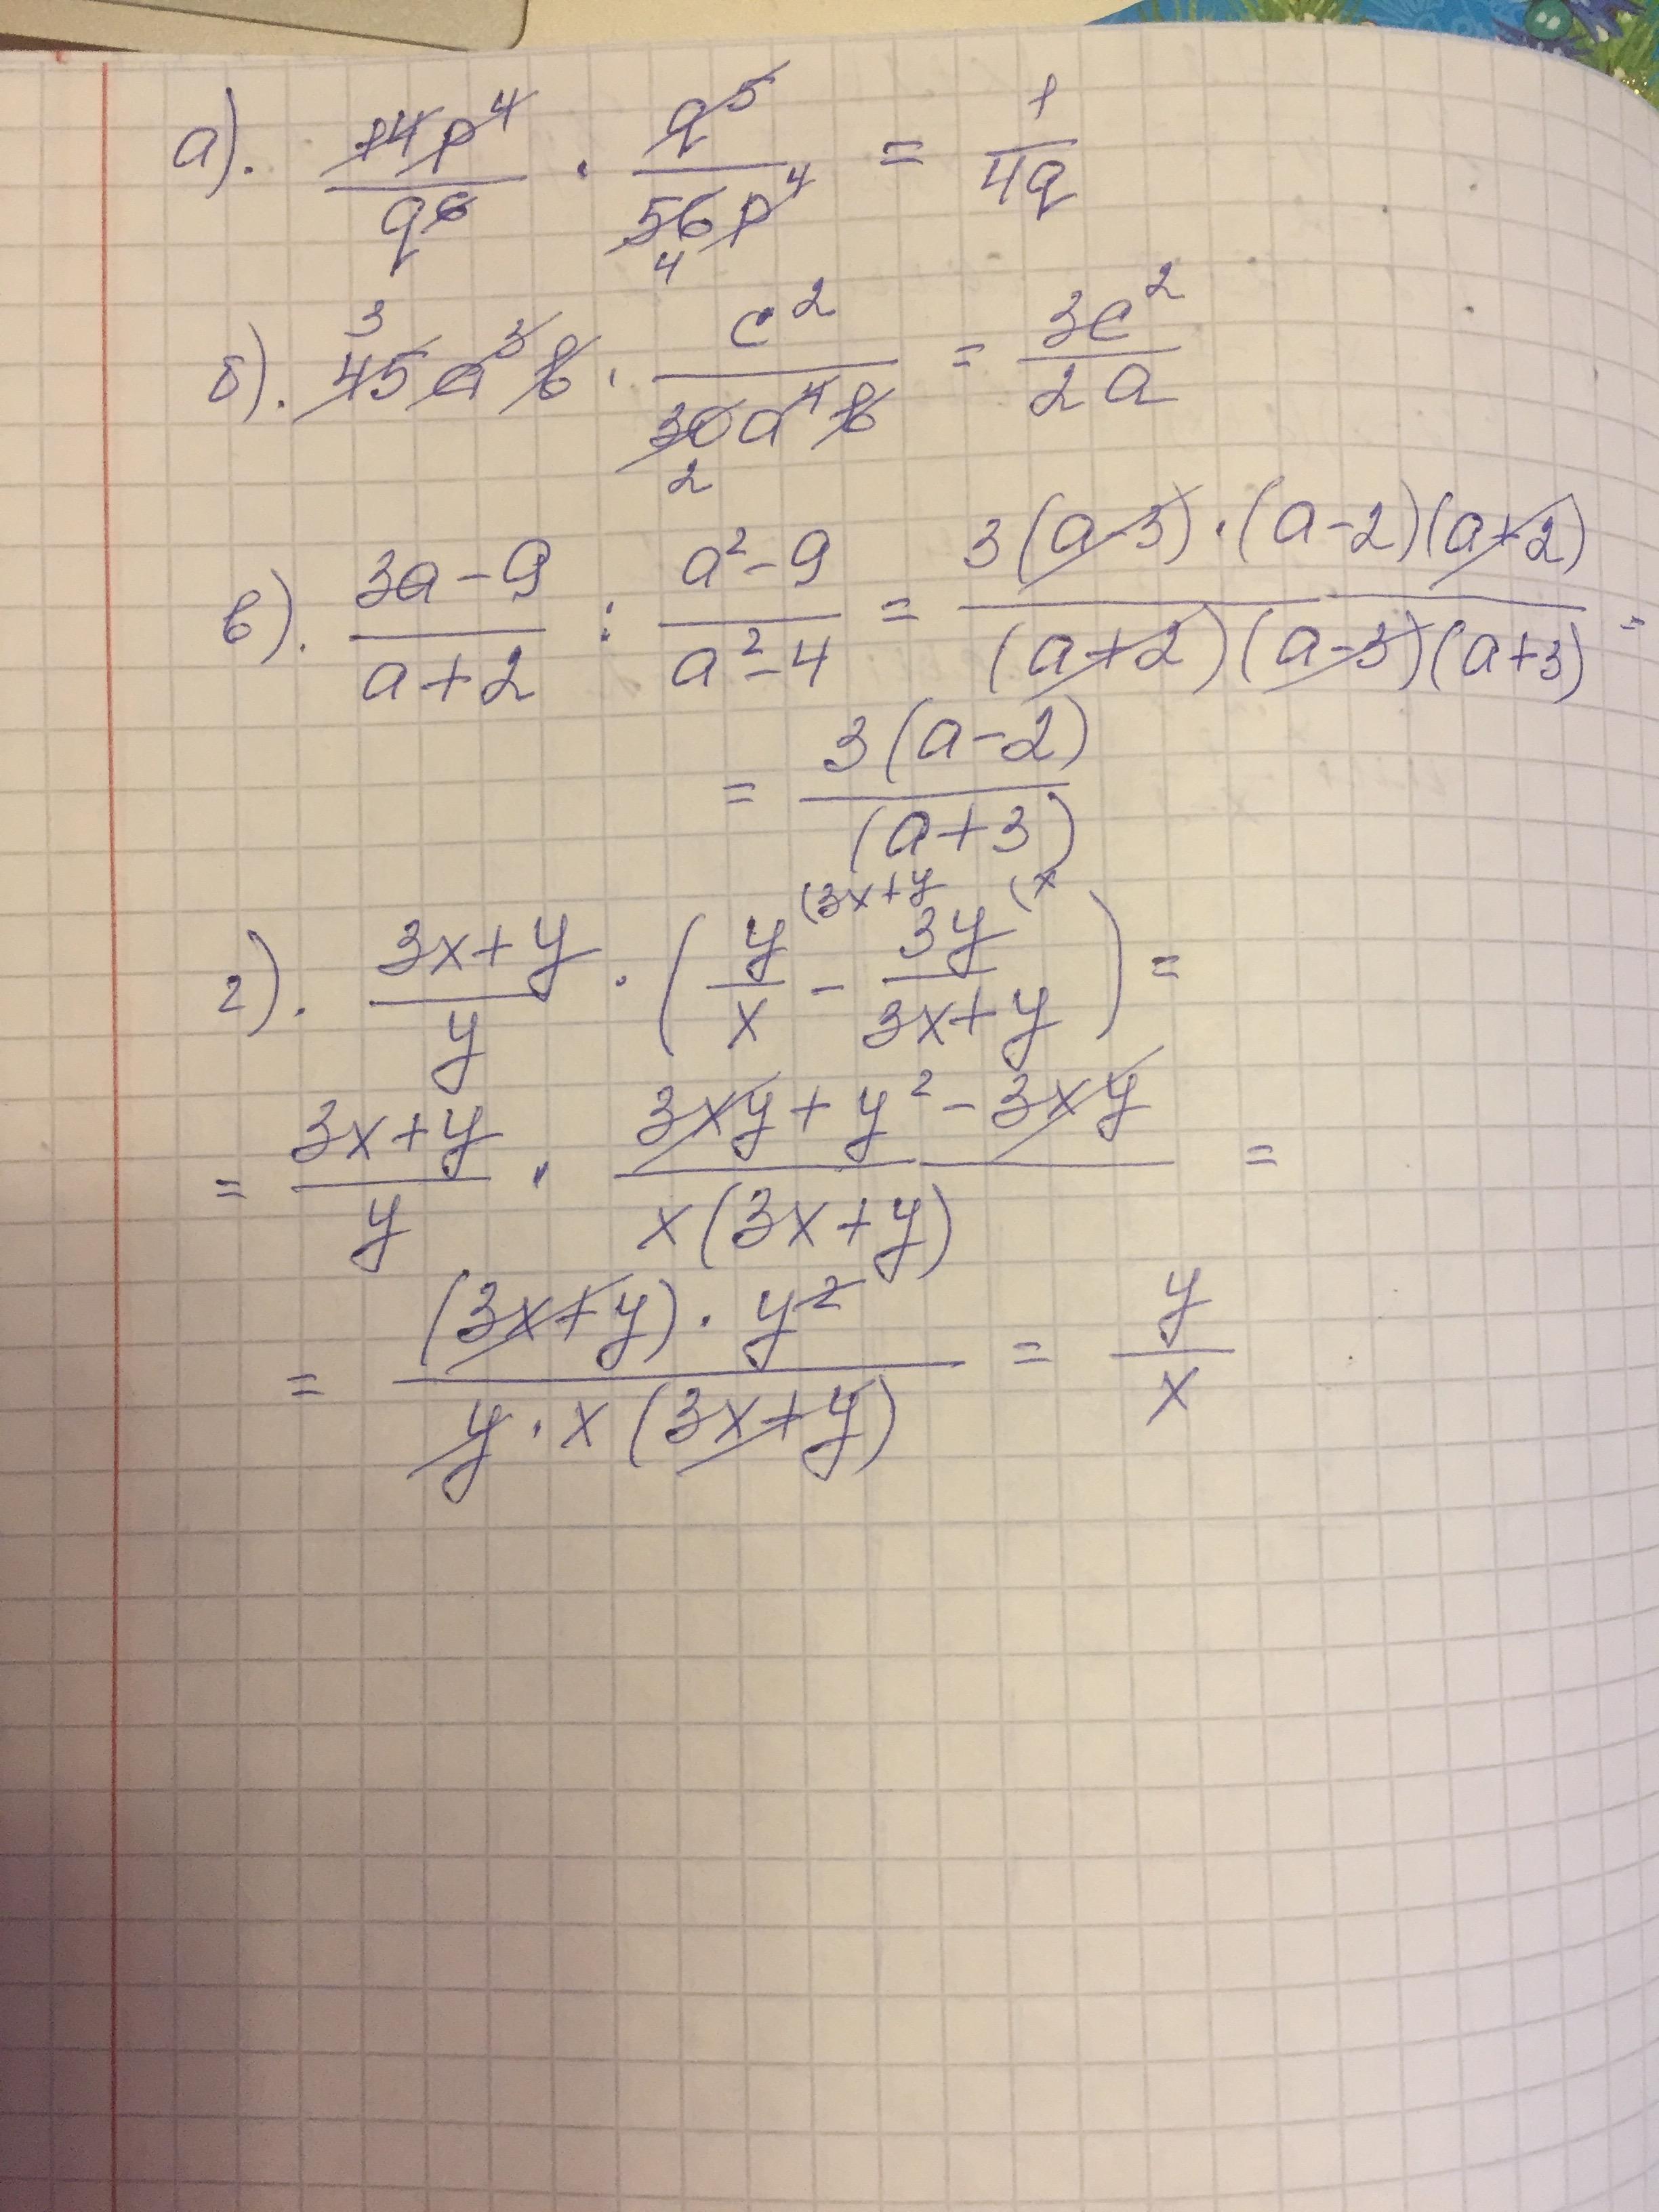 а). 14p⁴/q⁶ · q⁵/56p⁴ 4 = 1/4q
б). 3 45a³b · c²/30a⁴b 2 = 3c²/2a
в). 3a-9/a+2 : a²-9/a²-4 = 3(a-3)·(a-2)(a+2)/(a+2)(a-3)(a+3) =
= 3(a-2)/(a+3)
г). 3x+y/y · (y/x (3x+y - 3y/3x+y (x) =
= 3x+y/y · 3xy+y²-3xy/x(3x+y) =
= (3x+y)·y²/y·x(3x+y) = y/x